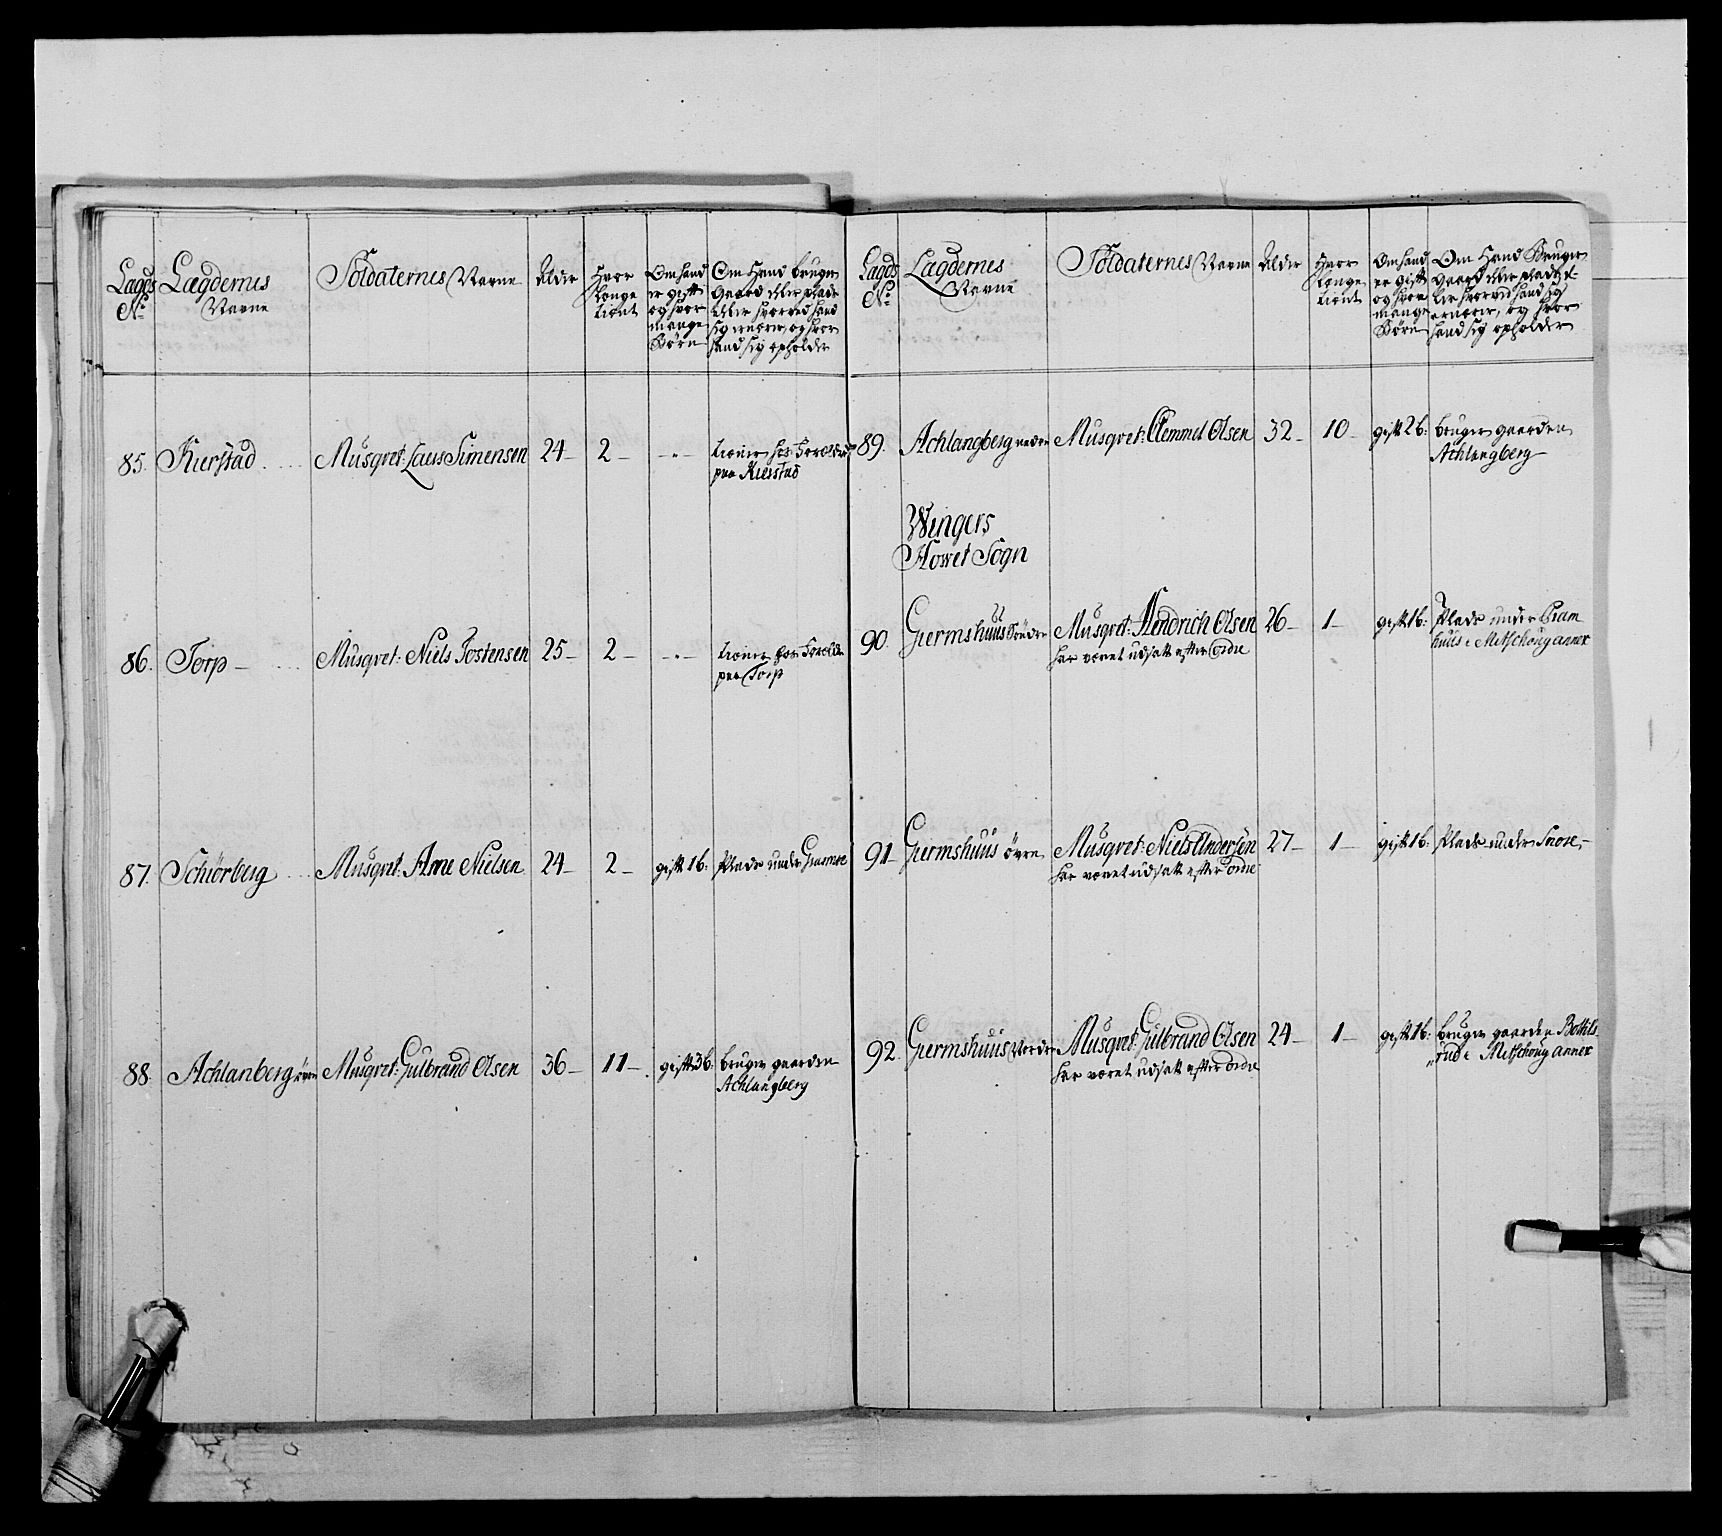 Lægds
No
Lægdernes
Navne
Soldaternes Navne
Alder
Hvor
længe
tient
Om hand
er gift
og hvor
mange
Børn
Om Hand bruger
Gaard eller plads
eller hvorved hand
sig ernærer, og hvor
hand sig opholder
85. Kierstad Musqvet: Laus Simensen 24 2 tiener hos Forældr
paa Kierstad
86. Torp Musqvet: Niels Tostensen 25 2 tiener hos Foræld
paa Torp
87. Schiörberg Musqvet: Arne Nielsen 24 2 gift 1 b: Plads under
88. Achlanberg øvre Musqvet: Gulbrand Olsen 36 11 gift 3 b: bruger gaarden
Achlangberg
Lægds
No
Lægdernes
Navne
Soldaternes Navne
Alder
Hvor
længe
tient
Om hand
er gift
og hvor
mange
Børn
Om Hand Bruger
gaard eller plads el-
ler hvorved hand sig
ernærer, og hvor
hand sig opholder
89. Achlangberg nedre Musqvet: Clemmet Olsen 32 10 gift 2 b: bruger gaarden
Achlangberg
Wingers
Howet Sogn
90. Giermshuus Søndre Musqvet: Hendrich Olsen 26 1 gift 1 b: Plads under Bram
har været udsatt efter Ordre huus i Mitschoug annex
91 Giermshuus øvre Musqvet: Niels Andersøn 27 1 gift 1 b: Plads under Snore,
har været udsatt efter Ordre
92. Giermshuus Nordre Musqvet: Gulbrand Olsen 24 1 gift 1 b: bruger gaarden Bottils
har været udsatt efter Ordre rud i Mitschoug annex